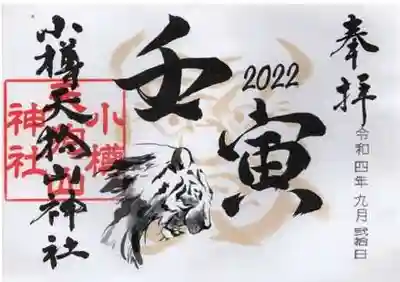 奉拝
令和四年九月弐拾日
2022
壬寅
小樽天狗山神社
小樽
天狗山
神社